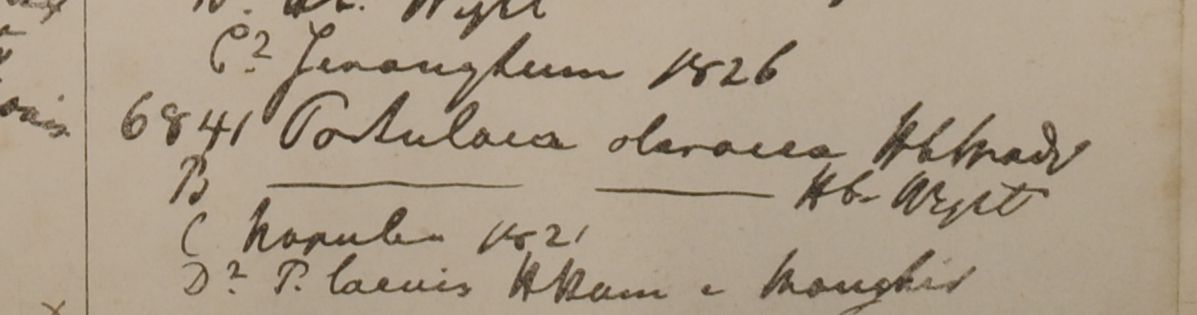 Hb. Wight
C? Jeranghum 1826
6841 Portulaca oleracea Hb Madr
B ——— ——— Hb. Wight
C Napuler 1821
D? P. laevis HHam e Monghir